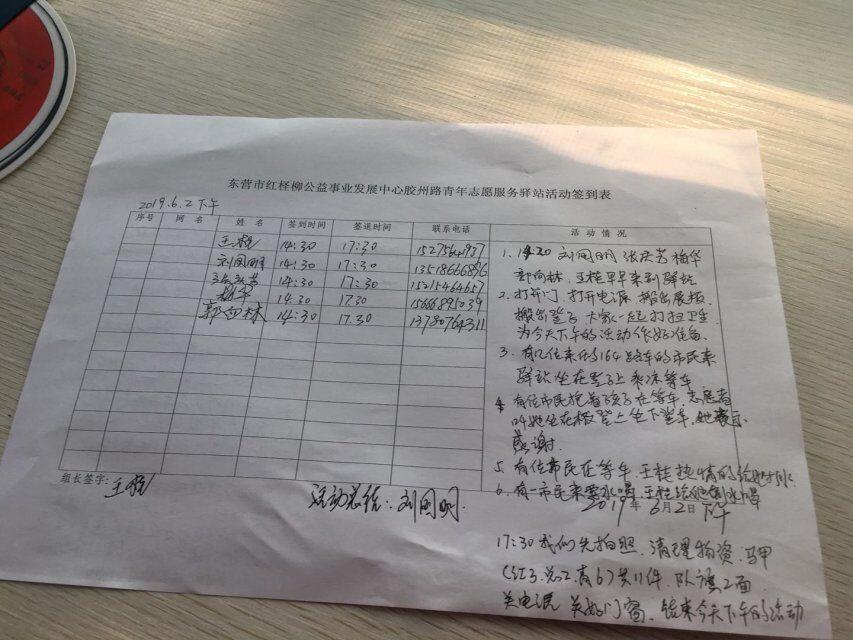 东营市红柽柳公益事业发展中心胶州路青年志愿服务驿站活动签到表
2019.6.2下午
序号 网名 姓名 签到时间 签退时间 联系电话 活动情况
王 14:30 17:30
刘国明 14:30 17:30 13518666896
14:30 17:30 15215464657
杨华 14.30 17.30 15666895039
郭向林 14:30 17.30 13780764311
1、14:20 刘国明 张庆芳 杨华
郭向林、王 早早来到驿站
2、打开门、打开电源 搬出展板
搬出凳子 大家一起打扫卫生
为今天下午的活动作好准备
3、有几位来the164路车的市民来
驿站坐在凳子上乘凉等车
4、有位市民抱着孩子在等车,志愿者
叫她坐在板凳上坐下等车,她表示
感谢
5、有位市民在等车,王 热情的给她
6、有一市民来要水喝,王 给他倒水喝
组长签字:王
活动总结:刘国明
2019年6月2日下午
17:30我们先拍照、清理物资、马甲
(红3、 2、青6)共11件、队旗2面
关电源 关好门窗、结束今天下午的活动